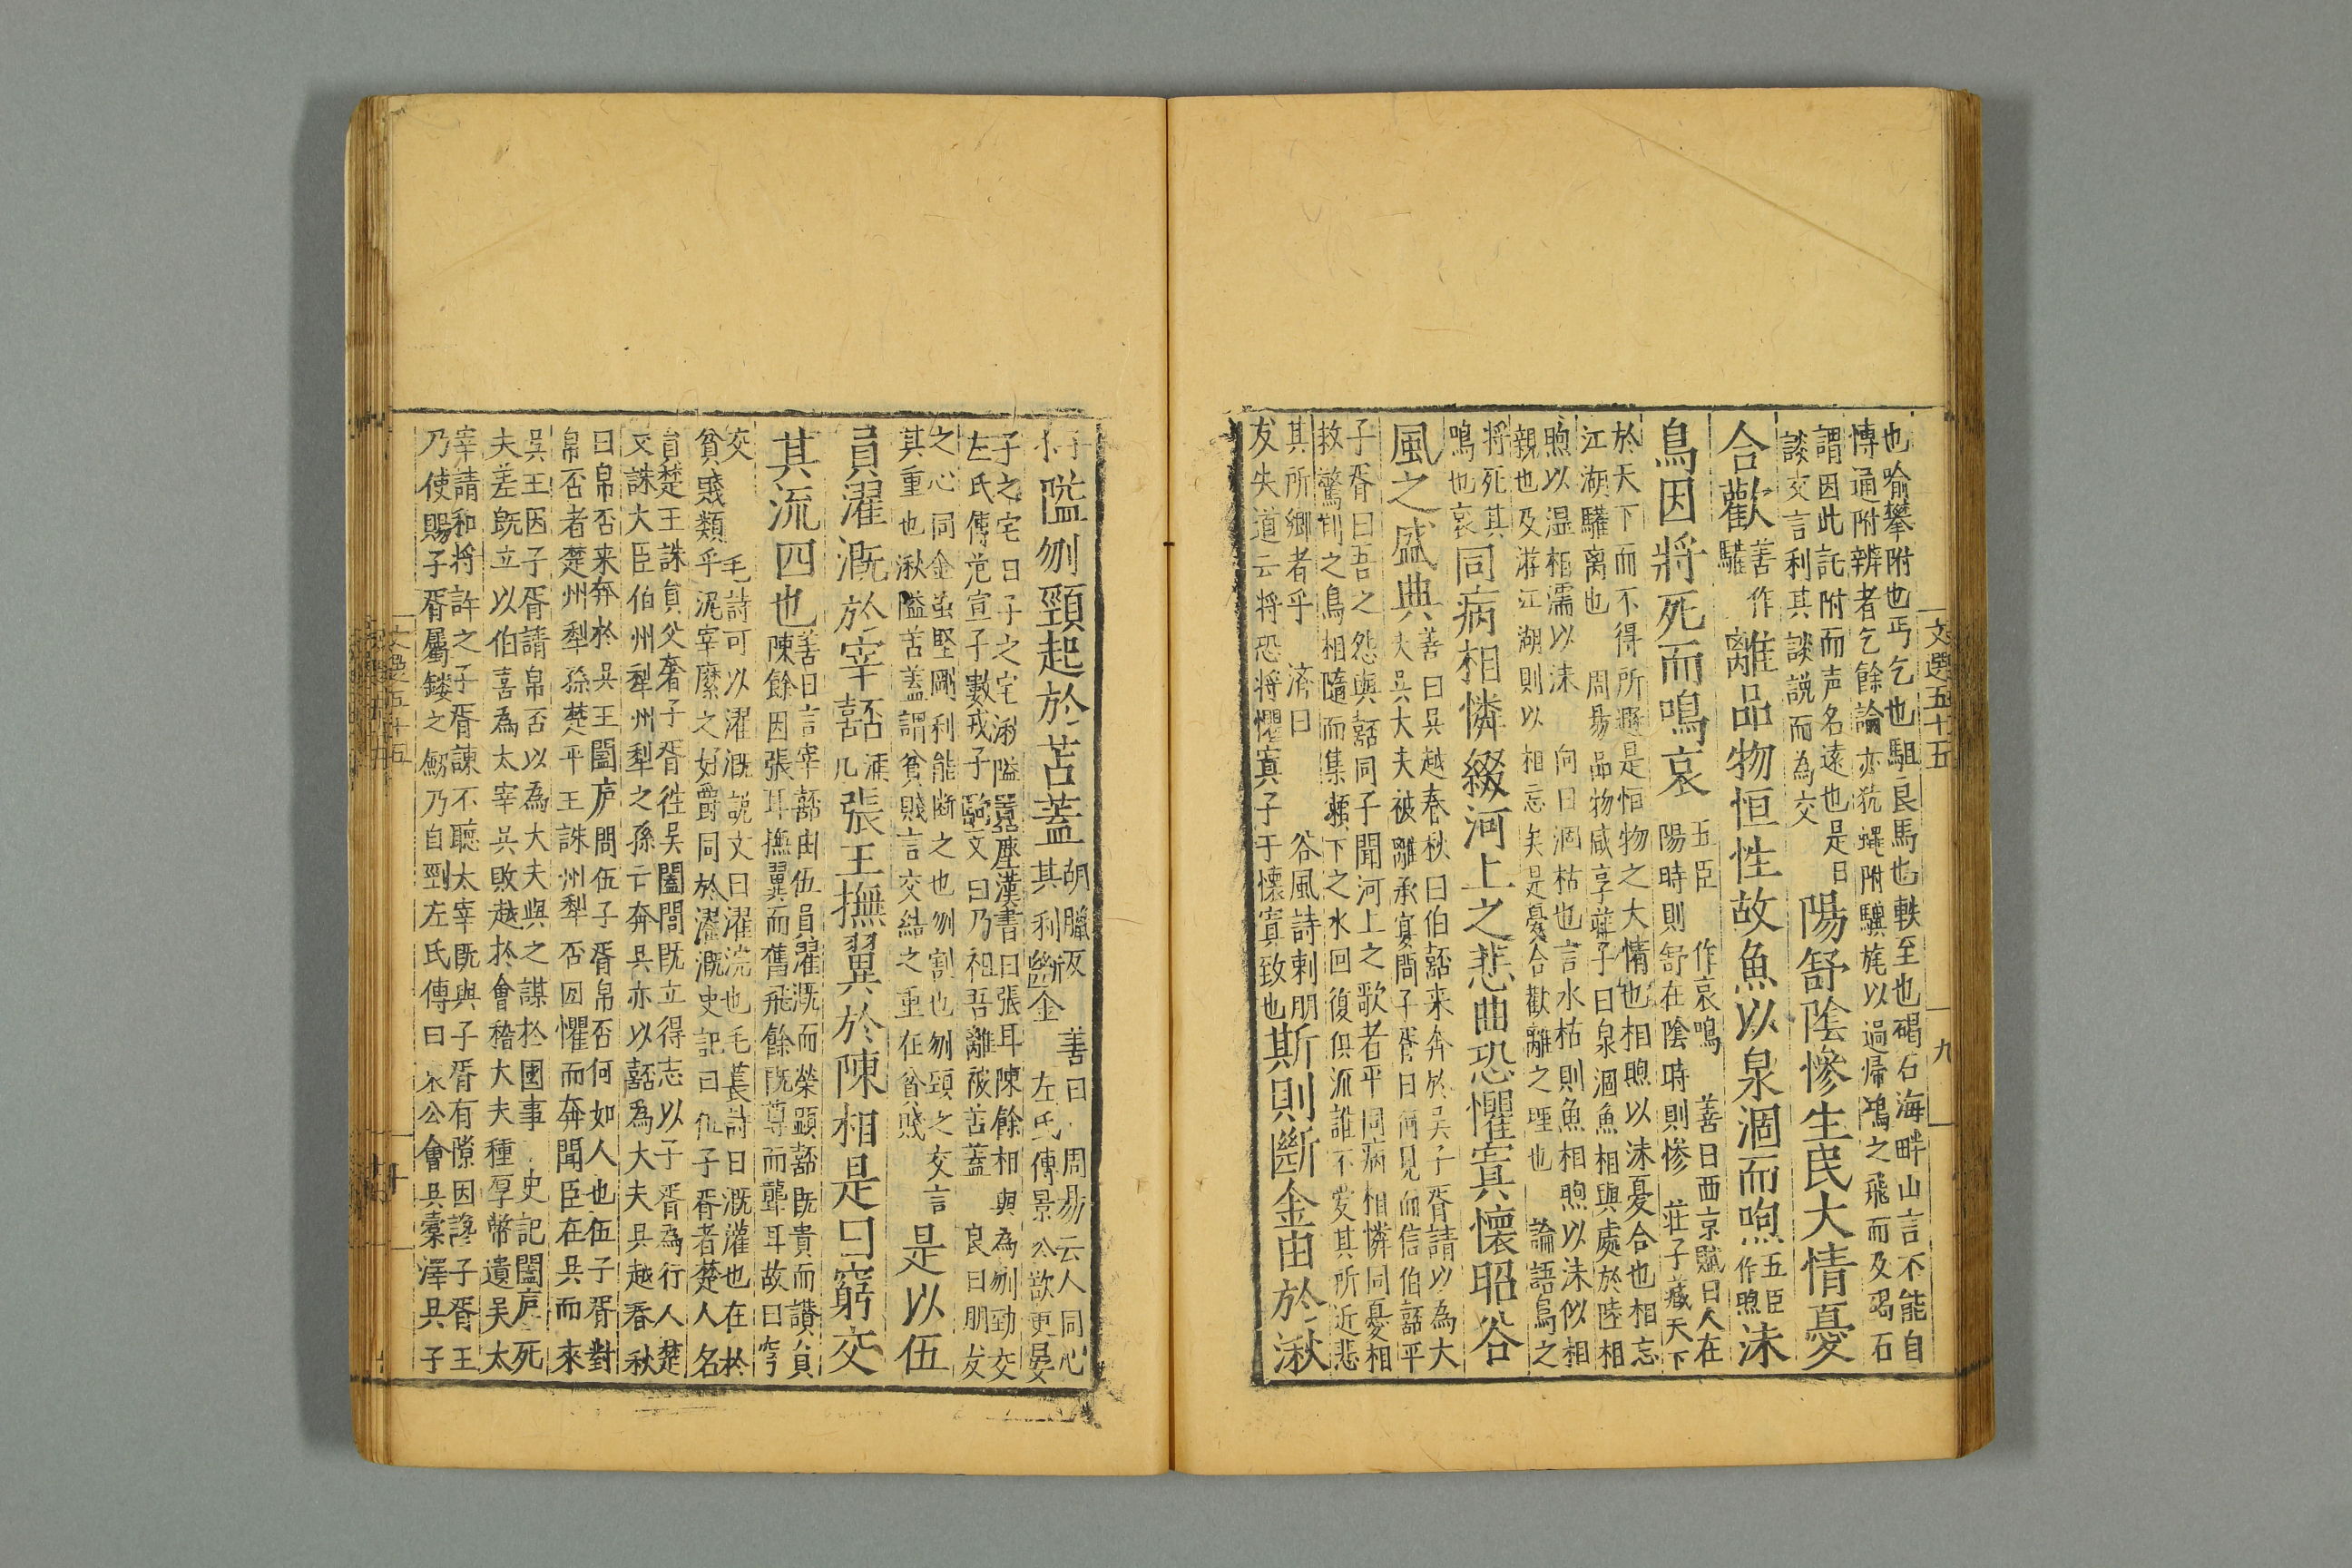 也喻攀附也丐乞也駔良馬也軼至也碣石海畔山言不能自
傳通附辨者乞餘論亦猶蠅附驥旄以過歸鴻之飛而及碣石
謂因此託附而声名遠也是曰
談交言利其談說而為交
陽舒陰慘生民大情憂
合歡
善作
驩
離品物恒性故魚以泉涸而呴
五臣
作煦
沫
鳥因將死而鳴哀
五臣 作哀鳴 善曰西京賦曰人在
陽時則舒在陰時則慘 莊子藏天下
於天下而不得所遯是恒物之大情也相呴以沫憂合也相忘
江湖驩离也 周易品物咸享莊子曰泉涸魚相與處於陸相
呴以湿相濡以沫 向曰涸枯也言水枯則魚相呴以沫似相
親也及游江湖則以相忘矣是憂合歡離之理也 論語鳥之
将死其
鳴也哀
同病相憐綴河上之悲曲恐懼寘懷昭谷
風之盛典
善曰吳越春秋曰伯嚭来奔於吴子胥請以為大
夫吳大夫被離承宴問子胥曰何見而信伯嚭平
子胥曰吾之怨與嚭同子聞河上之歌者平同病相憐同憂相
救驚翔之鳥相隨而集瀬下之水回復俱流誰不愛其所近悲
其所鄉者乎 濟曰 谷風詩刺朋
友失道云将恐将懼寘子于懷寘致也
斯則斷金由於湫
文選五十五
九
隘刎頸起於苫蓋
胡臘反 善曰 周易云人同心
其利斷金 左氏傳景公欲更晏
子之宅曰子之宅湫隘嚣塵漢書曰張耳陳餘相與為刎勁交
左氏傳范宣子數戎子駒文曰乃祖吾離被苫蓋 良曰朋友
之心同金虽堅剛利能断之也刎割也刎頸之交言
其重也湫隘苫蓋謂貧賤言交結之重在貧賤
是以伍
員濯溉於宰嚭
溉
几
張王撫翼於陳相是曰窮交
其流四也
善曰言宰嚭由伍員濯溉而榮顯嚭既貴而讃員
陳餘因張耳撫翼而舊飛餘既尊而聾耳故曰穹
交 毛詩可以濯溉說文曰濯浣也毛萇詩曰溉灌也在於
貧賤類乎泥宰縻之好爵同於濯溉史記曰伍子胥者楚人名
員楚王誅員父奢子胥徃吴闔閭既立得志以子胥為行人楚
又誅大臣伯州犁州犁之孫亡奔吳亦以嚭為大夫吳越春秋
曰帛否来奔於吳王闔庐問伍子胥帛否何如人也伍子胥對
帛否者楚州犁孫楚平王誅州犁否因懼而奔聞臣在吳而來
吳王因子胥請帛否以為大夫與之謀於國事 史記闔庐死
夫差既立以伯喜為太宰吳敗越於會稽大夫種厚幣遺吴太
宰請和将許之子胥諫不聽太宰既與子胥有隙因讒子胥王
乃使賜子胥屬鏤之劒乃自剄左氏傳曰 公會吳橐澤吳子
文選五十五
十